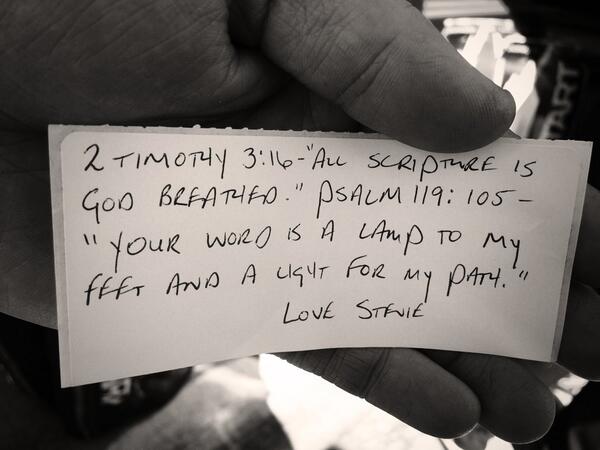 2 TIMOTHY 3:16-"ALL SCRIPTURE IS
GOD BREATHED." PSALM 119:105-
"YOUR WORD IS A LAMP TO MY
FEET AND A LIGHT FOR MY PATH."
LOVE STEVIE
START